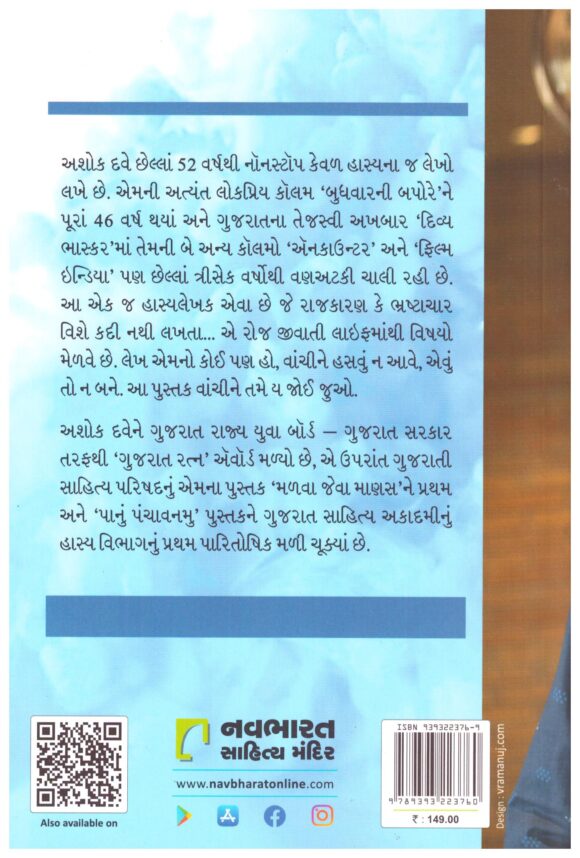 અશોક દવે છેલ્લાં 52 વર્ષથી નૉનસ્ટૉપ કેવળ હાસ્યના જ લેખો
લખે છે. એમની અત્યંત લોકપ્રિય કૉલમ ‘બુધવારની બપોરે’ને
પૂરાં 46 વર્ષ થયાં અને ગુજરાતના તેજસ્વી અખબાર ‘દિવ્ય
ભાસ્કર’માં તેમની બે અન્ય કૉલમો ‘ઍનકાઉન્ટર’ અને ‘ફિલ્મ
ઇન્ડિયા’ પણ છેલ્લાં ત્રીસેક વર્ષોથી વણઅટકી ચાલી રહી છે.
આ એક જ હાસ્યલેખક એવા છે જે રાજકારણ કે ભ્રષ્ટાચાર
વિશે કદી નથી લખતા... એ રોજ જીવાતી લાઇફમાંથી વિષયો
મેળવે છે. લેખ એમનો કોઈ પણ હો, વાંચીને હસવું ન આવે, એવું
તો ન બને. આ પુસ્તક વાંચીને તમે ય જોઈ જુઓ.
અશોક દવેને ગુજરાત રાજ્ય યુવા બૉર્ડ – ગુજરાત સરકાર
તરફથી ‘ગુજરાત રત્ન’ ઍવૉર્ડ મળ્યો છે, એ ઉપરાંત ગુજરાતી
સાહિત્ય પરિષદનું એમના પુસ્તક ‘મળવા જેવા માણસ’ને પ્રથમ
અને ‘પાનું પંચાવનમુ’ પુસ્તકને ગુજરાત સાહિત્ય અકાદમીનું
હાસ્ય વિભાગનું પ્રથમ પારિતોષિક મળી ચૂક્યાં છે.
Also available on
નવભારત
સાહિત્ય મંદિર
www.navbharatonline.com
ISBN 939322376-9
9 789393 223760
₹ : 149.00
Design : vramanuj.com